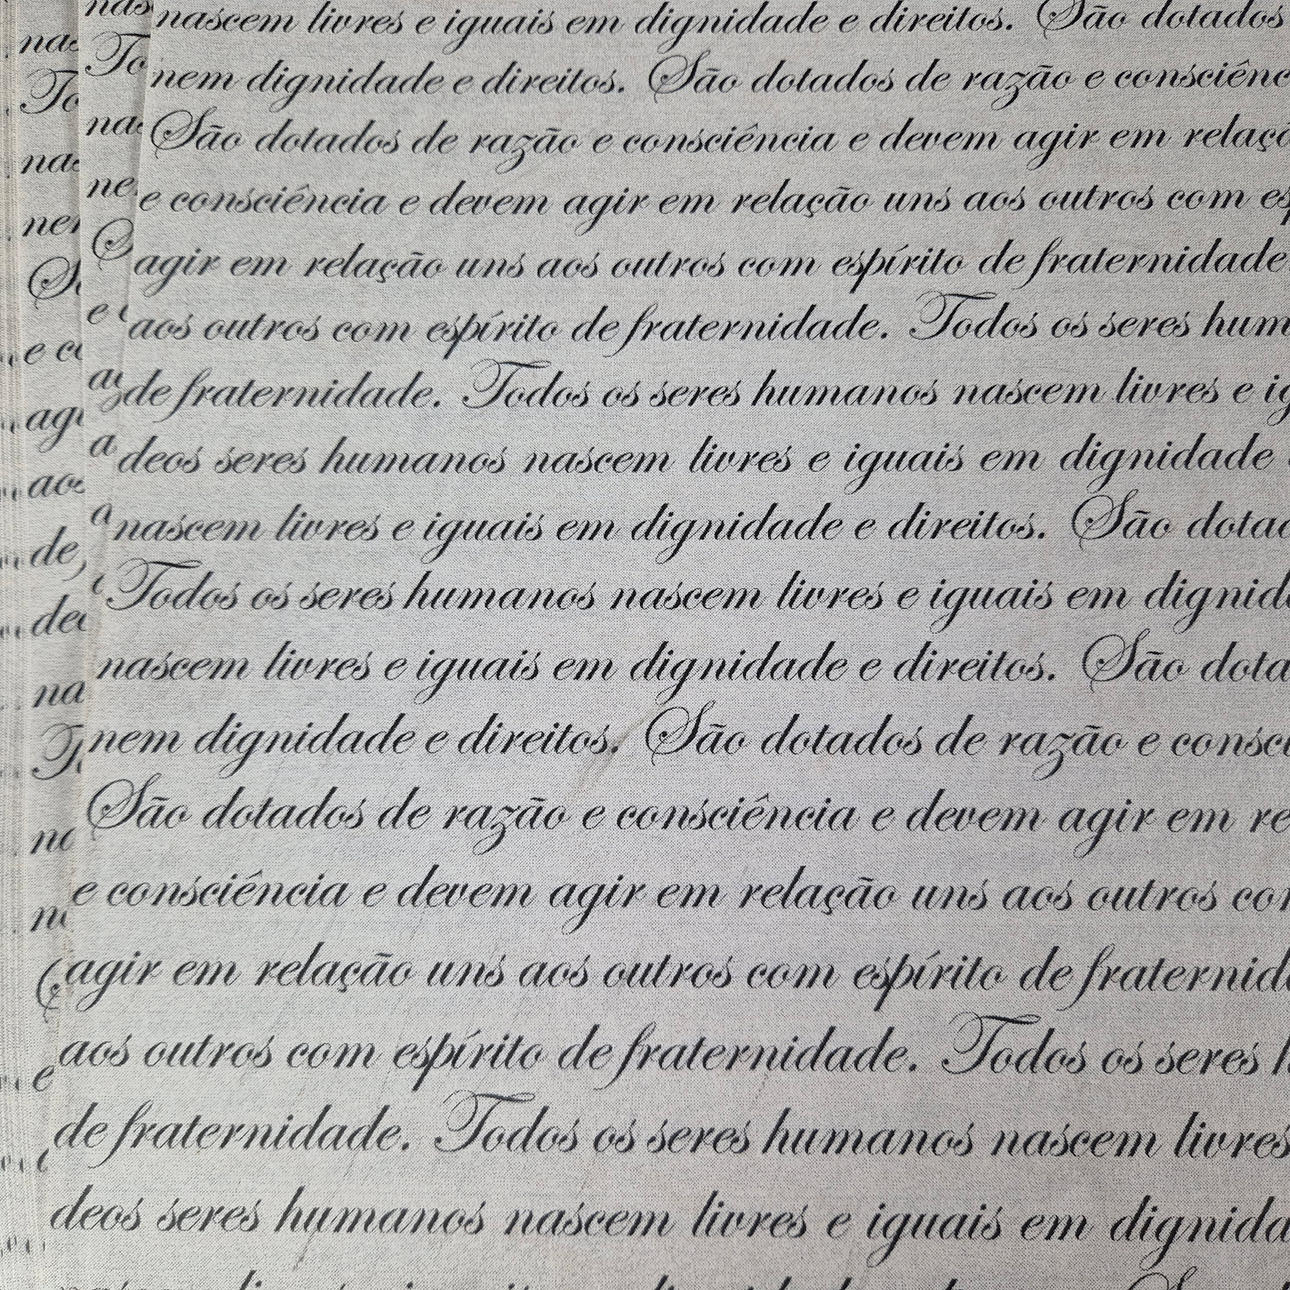 nascem livres e iguais em dignidade e direitos. São dotados
nem dignidade e direitos. São dotados de razão e consciênc
São dotados de razão e consciência e devem agir em relaçã
e consciência e devem agir em relação uns aos outros com esp
agir em relação uns aos outros com espírito de fraternidade
aos outros com espírito de fraternidade. Todos os seres hum
de fraternidade. Todos os seres humanos nascem livres e ig
deos seres humanos nascem livres e iguais em dignidade
nascem livres e iguais em dignidade e direitos. São dotad
Todos os seres humanos nascem livres e iguais em dignida
nascem livres e iguais em dignidade e direitos. São dota
nem dignidade e direitos. São dotados de razão e consci
São dotados de razão e consciência e devem agir em re
e consciência e devem agir em relação uns aos outros com
agir em relação uns aos outros com espírito de fraternida
aos outros com espírito de fraternidade. Todos os seres h
de fraternidade. Todos os seres humanos nascem livres
deos seres humanos nascem livres e iguais em dignida